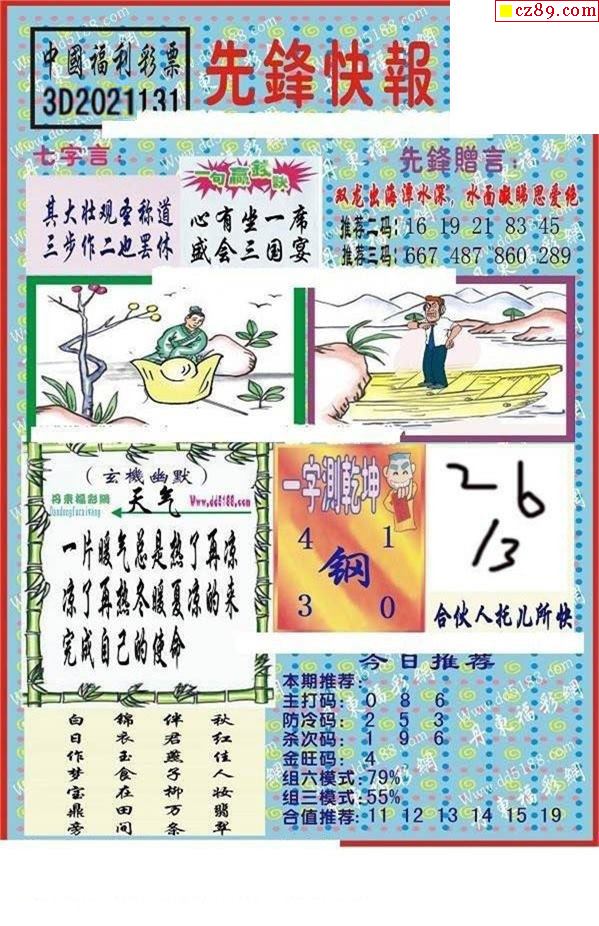 cz89.com
中國福利彩票
3D2021131
先鋒快報
七字言：
其大壮观圣称道
三步作二也罢休
一句赢钱诀
心有坐一席
盛会三国宴
先鋒贈言：
双龙出海潭水深，水面凝睇思爱绝
推荐二码：16 19 21 83 45
推荐三码：667 487 860 289
（玄機幽默）
丹東福彩網
Dandongfucaiwang
天气
www.dd5188.com
一片暖气总是热了再凉
凉了再热冬暖夏凉的来
完成自己的使命
一字测乾坤
4 1
钢
3 0
26
13
合伙人托儿所快
白日作梦宝鼎旁
锦衣玉食在田间
伴君燕子柳万条
秋红佳人妆翡翠
今日推荐
本期推荐：
主打码：0 8 6
防冷码：2 5 3
杀次码：1 9 6
金旺码：4
组六模式：79%
组三模式：55%
合值推荐：11 12 13 14 15 19